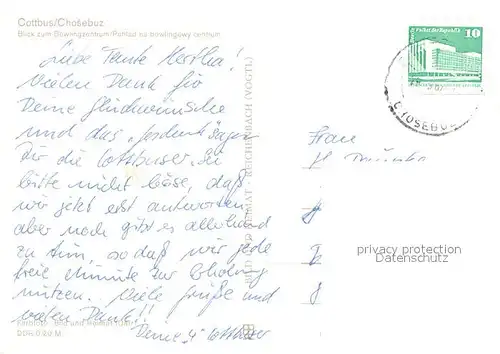 Cottbus/Chośebuz
Blick zum Bowlingzentrum/Pohlad na bowlingowy centrum
Liebe Tante Hertha!
Vielen Dank für
Deine Glückwünsche
und das
für die Cottbuser. Sei
bitte nicht böse, daß
wir jetzt erst antworten,
aber noch gibt es allerhand
zu tun, so daß wir jede
freie Minute zur Erholung
nutzen. Viele Grüße und
vielen Dank!!
Deine "4" Cottbuser
Bild und Heimat
DDR 0,20 M
BILD UND HEIMAT REICHENBACH (VOGTL)
Palast der Republik
10
CHOSEBUZ
Frau
H
privacy protection
Datenschutz